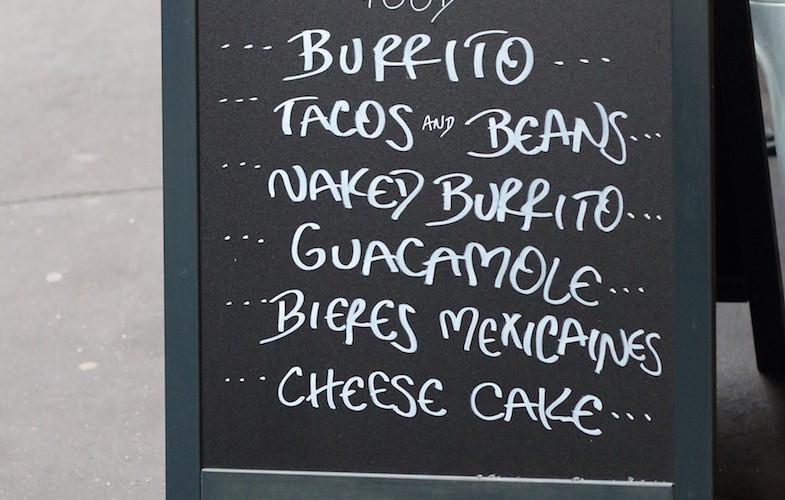 FOOD
... BURRITO ...
... TACOS AND BEANS...
... NAKED BURRITO...
... GUACAMOLE...
...BIERES MEXICAINES
... CHEESE CAKE...